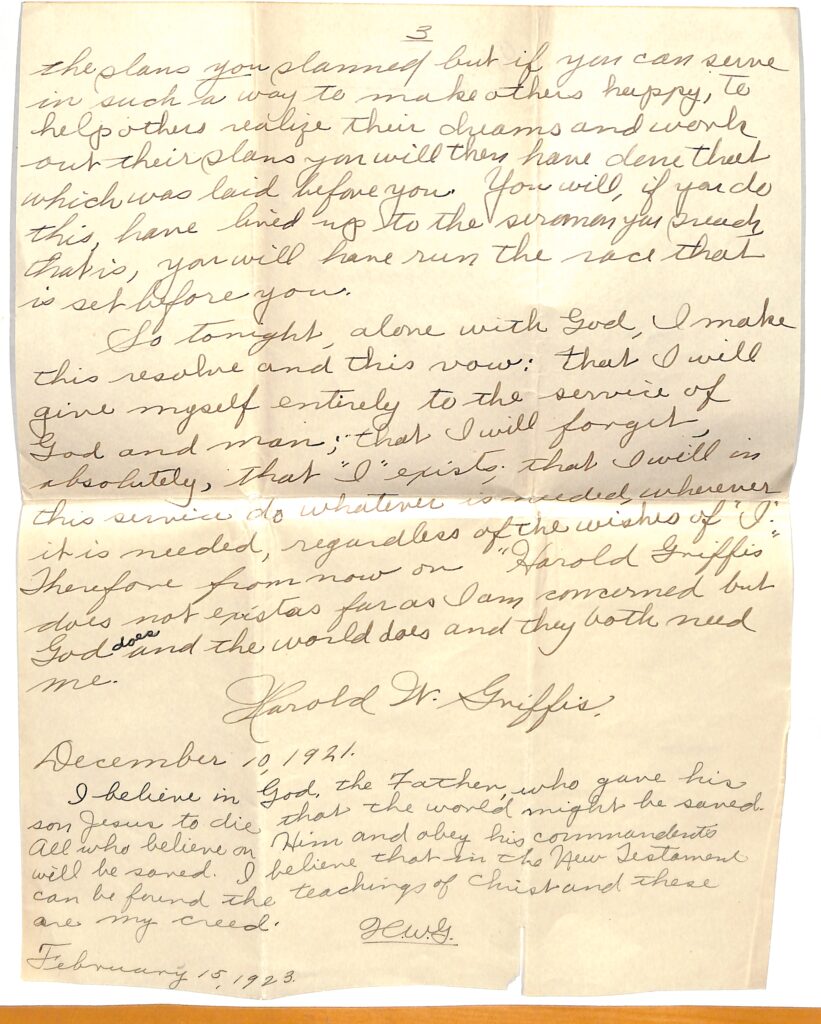 3
the plans you planned but if you can serve
in such a way to make others happy, to
help others realize their dreams and work
out their plans you will then have done that
which was laid before you. You will, if you do
this, have lived up to the sermon you preach
that is, you will have run the race that
is set before you.
So tonight, alone with God, I make
this resolve and this vow: that I will
give myself entirely to the service of
God and man; that I will forget,
absolutely, that "I" exists; that I will in
this service do whatever is needed, wherever
it is needed, regardless of the wishes of "I."
Therefore from now on "Harold Griffis"
does not exist as far as I am concerned but
God does and the world does and they both need
me.
Harold W. Griffis.
December 10, 1921.
I believe in God, the Father, who gave his
son Jesus to die that the world might be saved.
All who believe on Him and obey his commandents
will be saved. I believe that in the New Testament
can be found the teachings of Christ and these
are my creed.
H.W.G.
February 15, 1923.